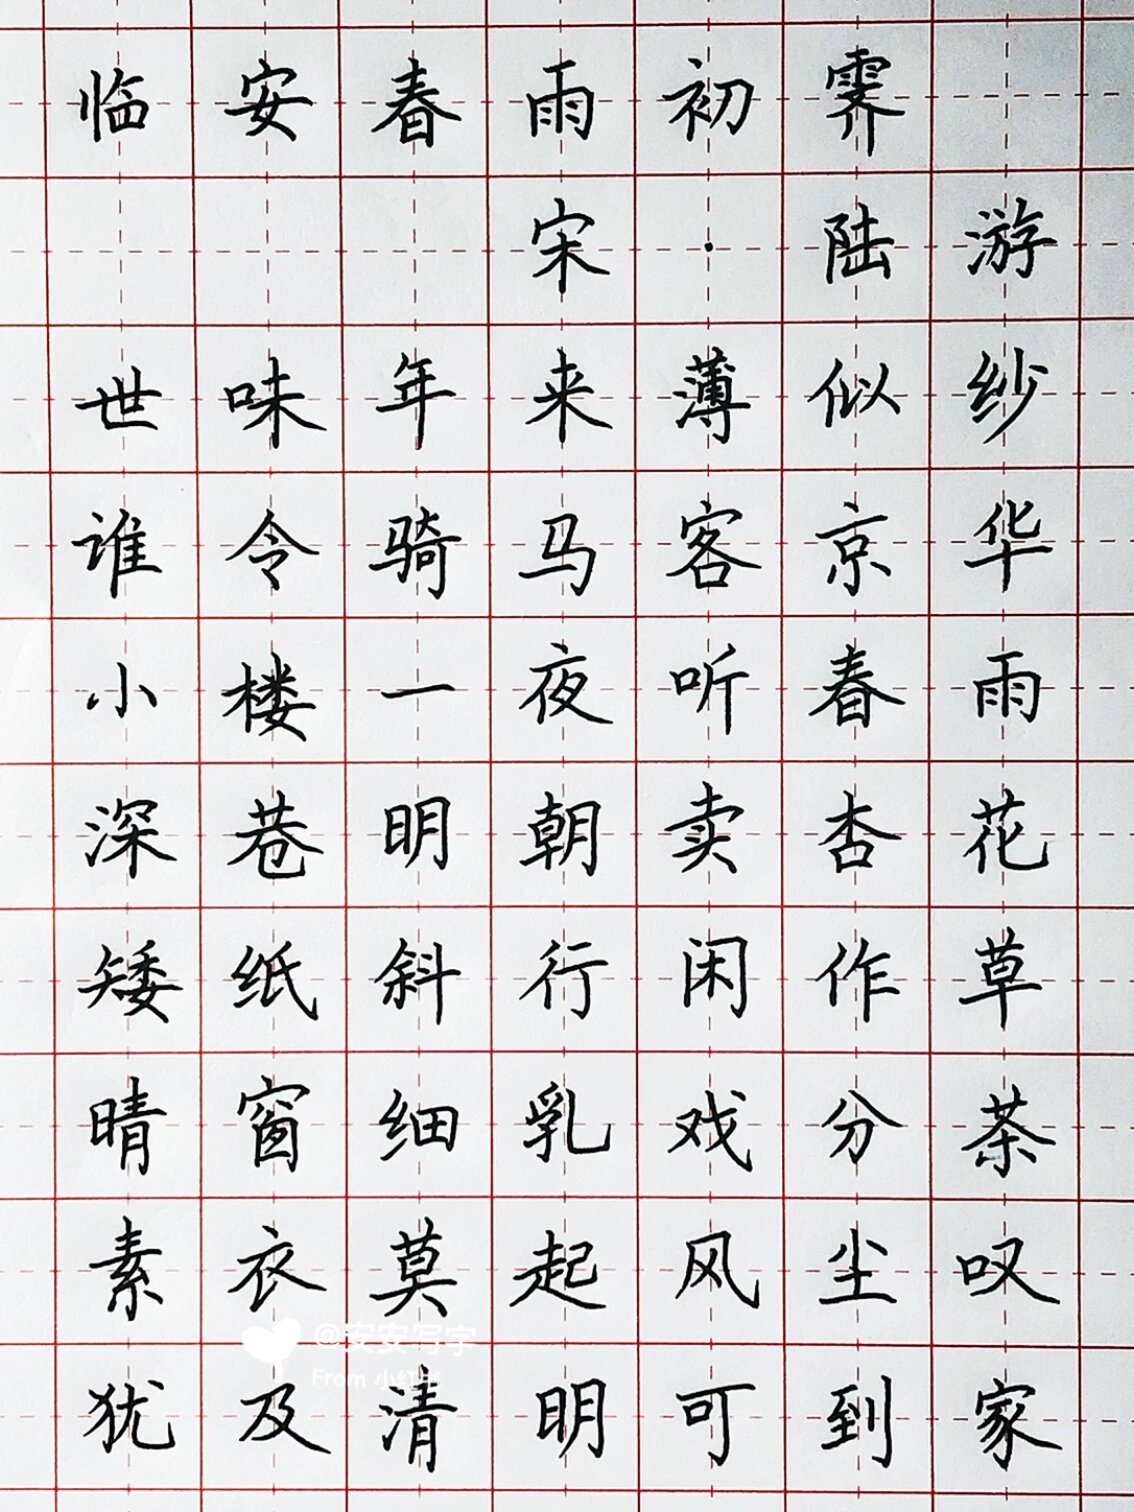 临安春雨初霁
宋·陆游
世味年来薄似纱
谁令骑马客京华
小楼一夜听春雨
深巷明朝卖杏花
矮纸斜行闲作草
晴窗细乳戏分茶
素衣莫起风尘叹
@安安写字
From 小红书
犹及清明可到家